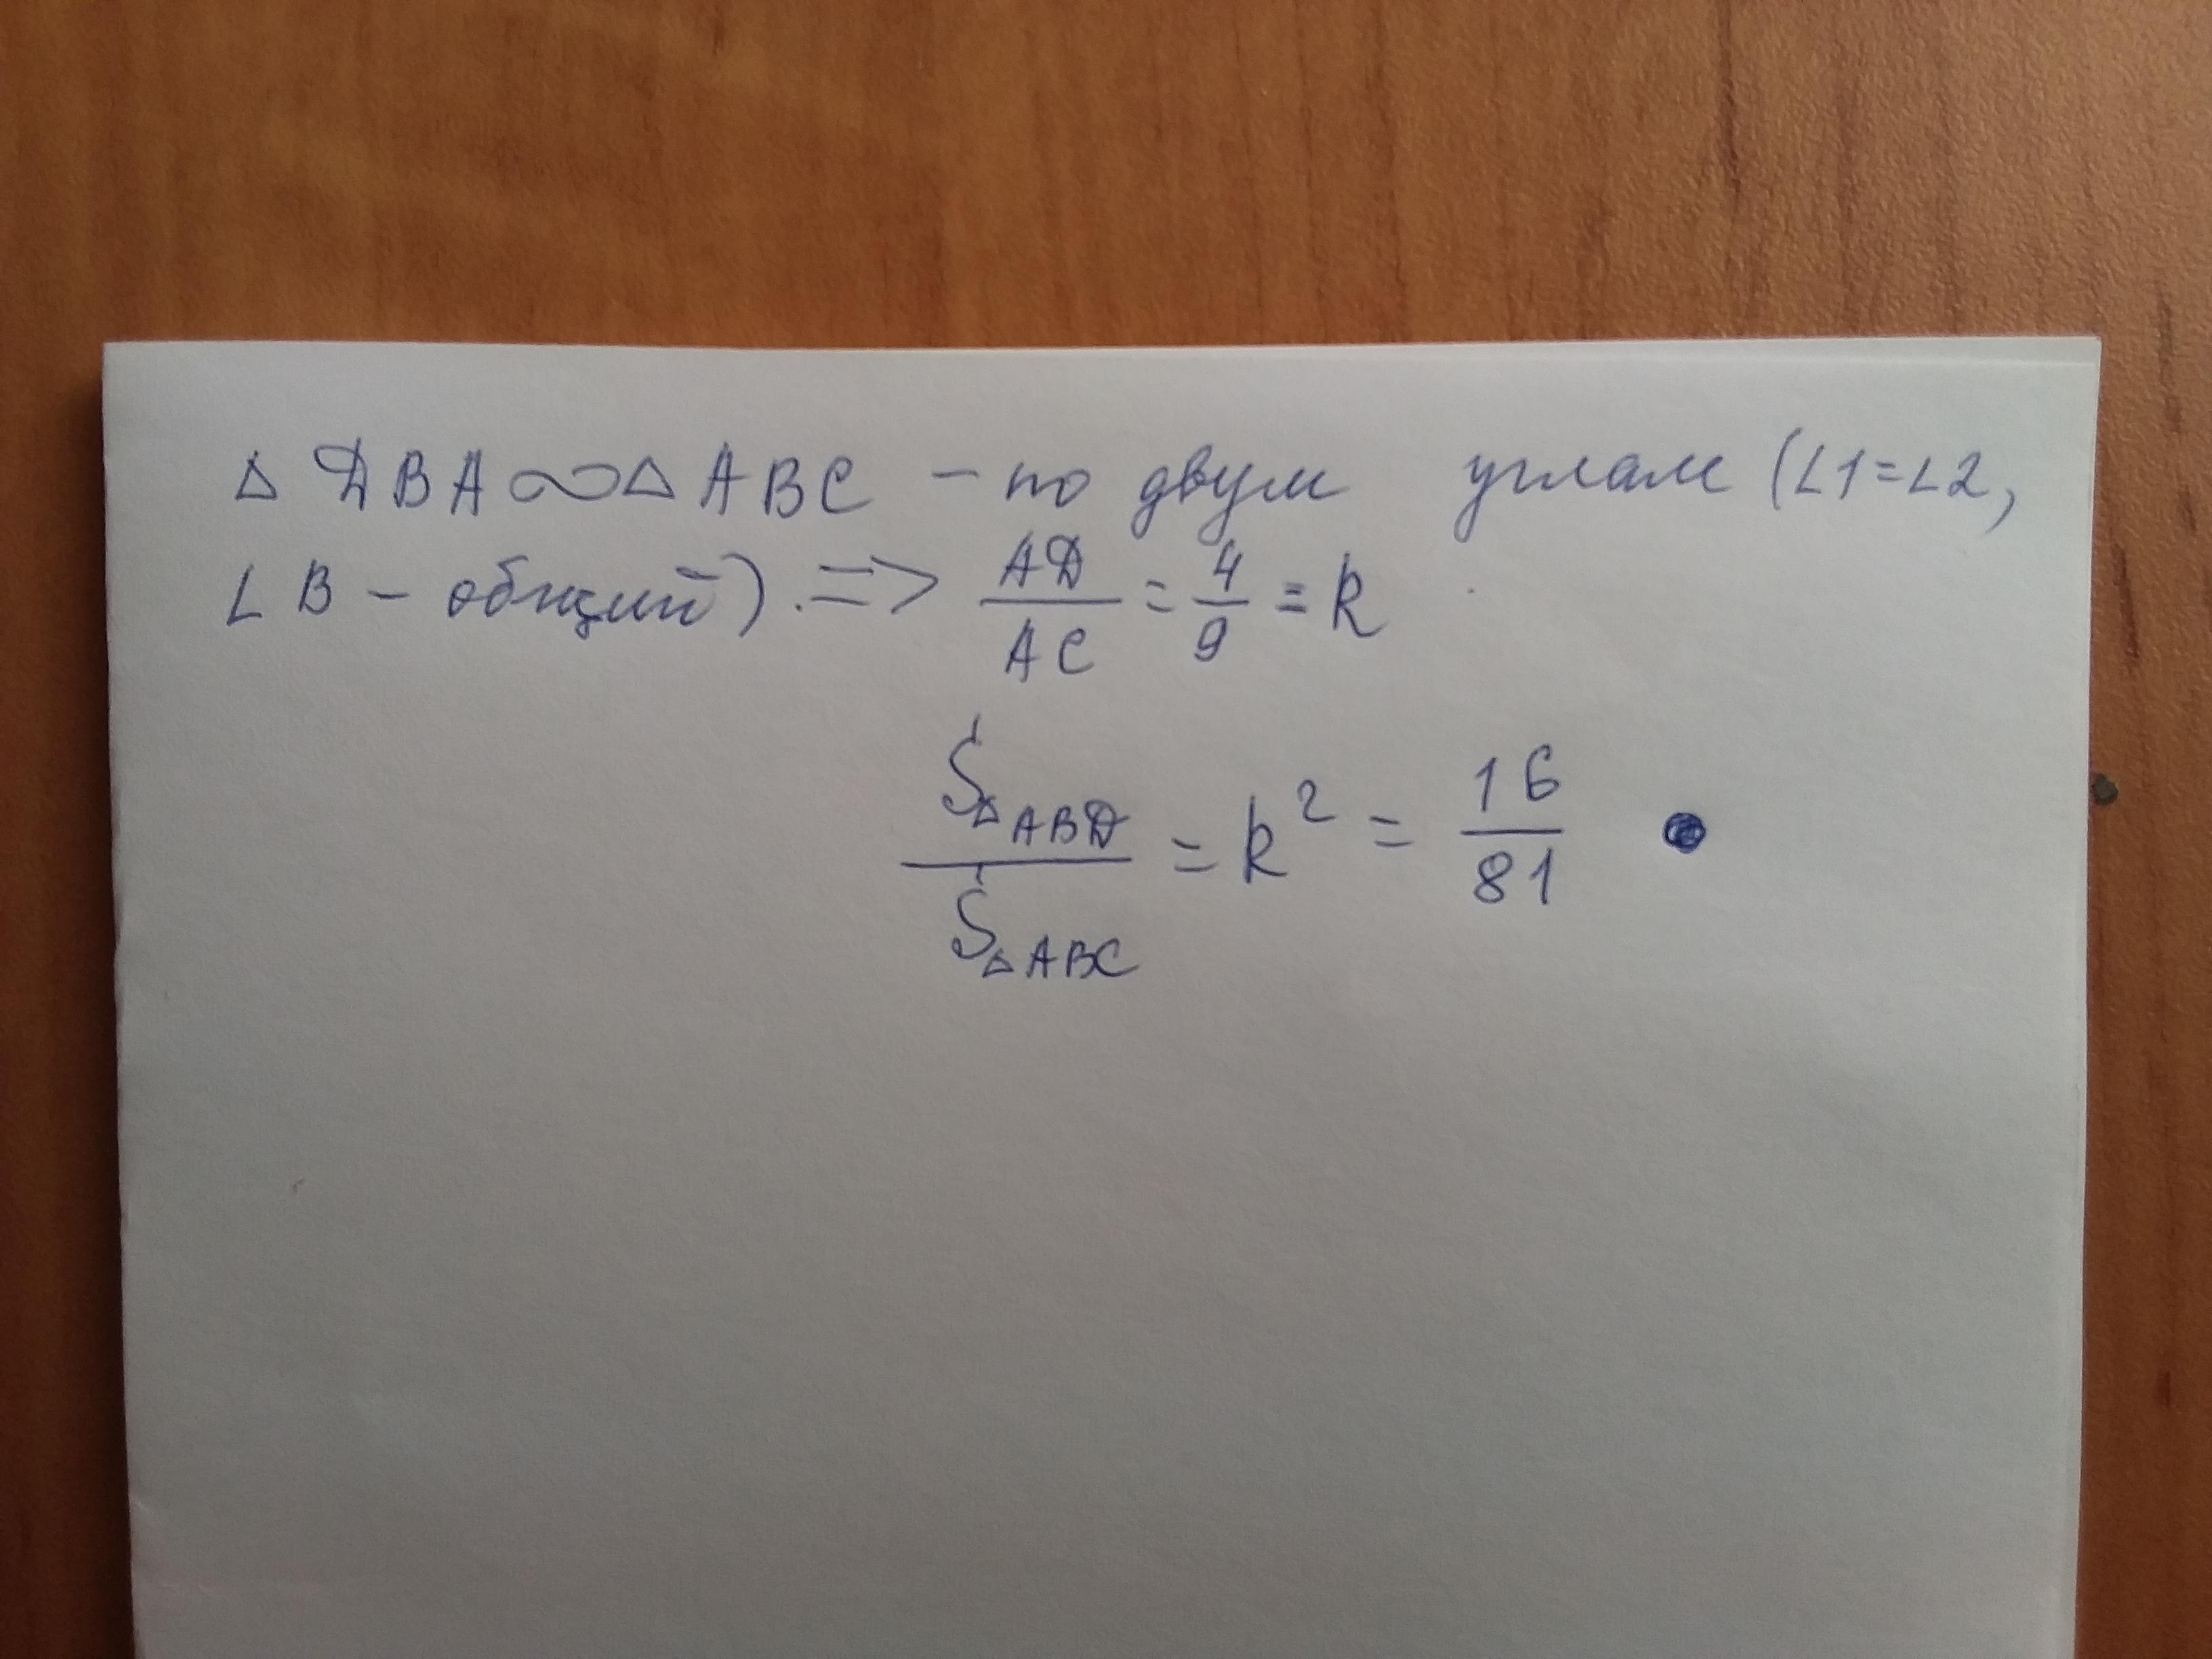 △ DBA ∾ △ ABC – по двум углам (∠1=∠2,
∠B – общий). => AD/AC = 4/9 = k
S△ABD/S△ABC = k² = 16/81